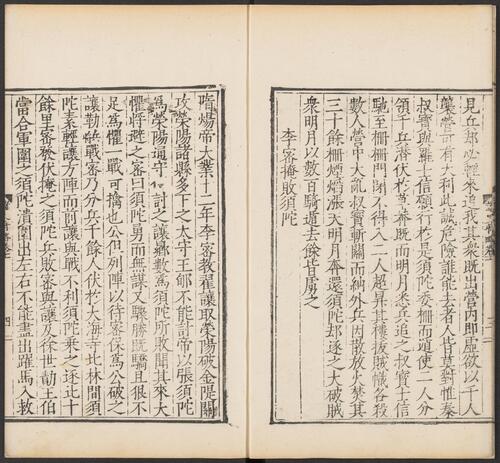 見兵却必輕來追我其衆既出營內即虛欲以千人
襲營可有大利此誠危險誰能去者人皆莫對惟秦
叔寶與羅士信願行於是須陀委柵而遁使二人分
領千兵潛伏於草莽既而明月悉兵追之叔寶士信
馳至柵柵門閉不得入二人超昇其樓拔賊幟各殺
數人營中大亂叔寶斬關而納外兵因散放火焚其
三十餘柵煙焰漲天明月奔還須陀却逐之大破賊
衆明月以數百騎遁去餘皆虜之
李密掩敗須陀
隋煬帝大業十二年李密教翟讓取滎陽破金隄關
攻滎陽諸縣多下之太守王郇不能討帝以張須陀
為滎陽通守以討之讓嚮數為須陀所敗聞其來大
懼將避之密曰須陀勇而無謀又驟勝既驕且狠不
足為懼一戰可擒也公但列陣以待密保為公破之
讓勒兵戰密乃分兵千餘人伏於大海寺北林間須
陀素輕讓方陣而前讓與戰不利須陀乗之逐北十
餘里密發伏掩之須陀兵敗密與讓及徐世勣王伯
當合軍圍之須陀潰圍出左右不能盡出躍馬入救